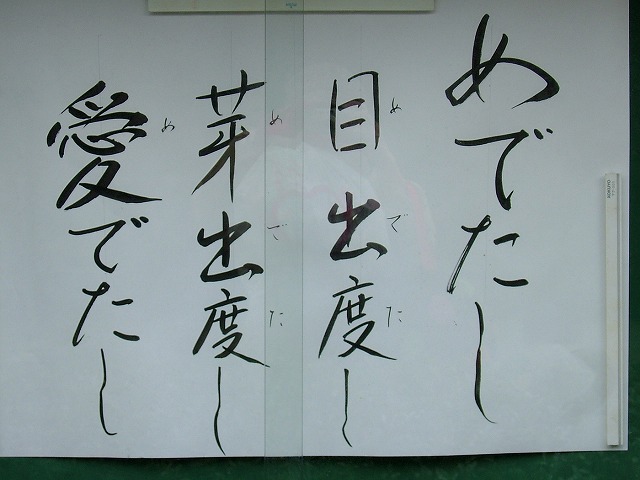 めでたし
目出度し
めでた
芽出度し
めでた
愛でたし
め
KOKUYO